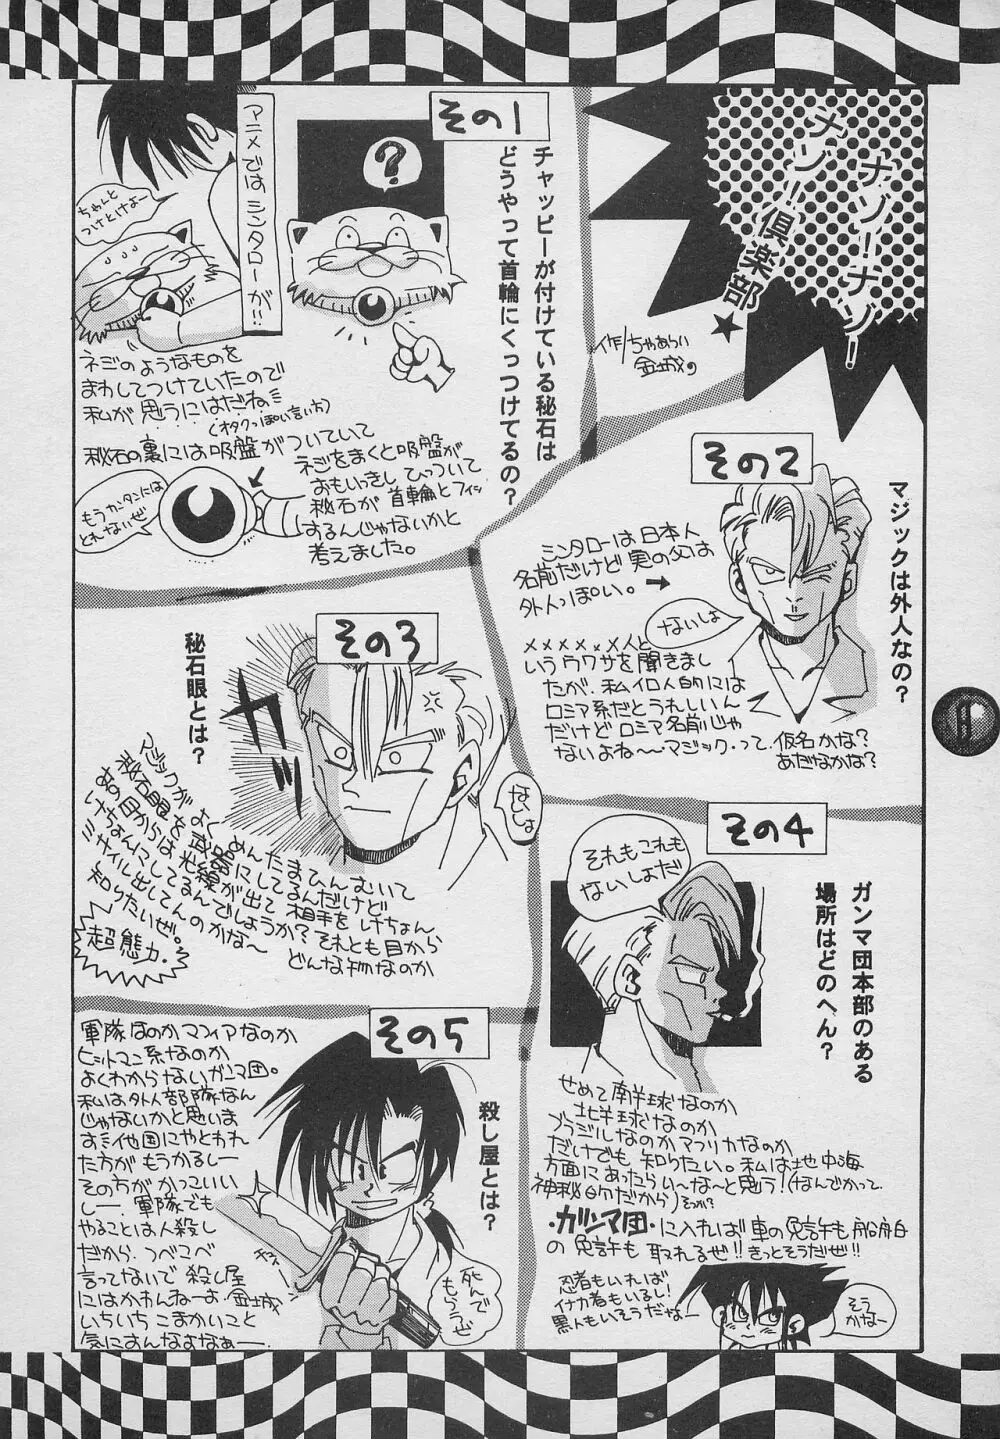 ナゾ!ナゾ!
ナゾ!倶楽部★
作/ちゃあらい
金城。
その1
チャッピーが付けている秘石は
どうやって首輪にくっつけてるの?
?
アニメではシンタローが!!!
ちゃんと
つけとけよー
ネジのようなものを
まわしてつけていたので
私が思うにはだね、ミ
(オタクっぽい言い方)
秘石の裏には吸盤がついていて
ネジをまくと吸盤が
おもいっきしひっついて
秘石が首輪とフィッ
するんじゃないかと
考えました。
もうカンタンには
とれないぜ
その2
マジックは外人なの?
シンタローは日本人
名前だけど実の父は
外人っぽい。→
ないしょ
××××××人と
いうウワサを聞きまし
たが、私イロ人的には
ロシア系だとうれしいん
だけどロシア名前じゃ
ないよね〜マジック・って、仮名かな?
あだなかな?
その3
秘石眼とは?
カッ
ないしょ
マジックがよくめんたまひんむいて
秘石眼を武器にしてるんだけど
あの目からは光線が出て相手をけちょん
けちょんにしてるんでしょうか?それとも目から
ミサイル出してんのかな〜どんな物なのか
知りたいぜ。
超能力.
その4
ガンマ団本部のある
場所はどのへん?
それもこれも
ないしょだ
せめて南半球なのか
北半球なのか
ブラジルなのかアフリカなのか
だけでも知りたい。私は地中海
方面にあったらい〜な〜と思う!(なんでかって、
神秘的だから)そっか?
・ガンマ団・に入れば車の免許も船舶
の免許も取れるぜ!!きっとそうだぜ!!
忍者もいれば
イナカ者もいるし!
黒人もいそうだな〜
そう
かな〜
その5
殺し屋とは?
軍隊なのかマフィアなのか
ヒットマン系なのか
よくわからないガンマ団。
私は外人部隊なん
じゃないかと思いま
すミ他国にやとわれ
た方がもうかるしー
その方がかっこいい
しー.軍隊でも
やることは人殺し
だから、つべこべ
言ってないで殺し屋
にはかわんねーよ.金城
いちいちこまかいこと
気におんなよなぁー.
死んで
もらうぜ